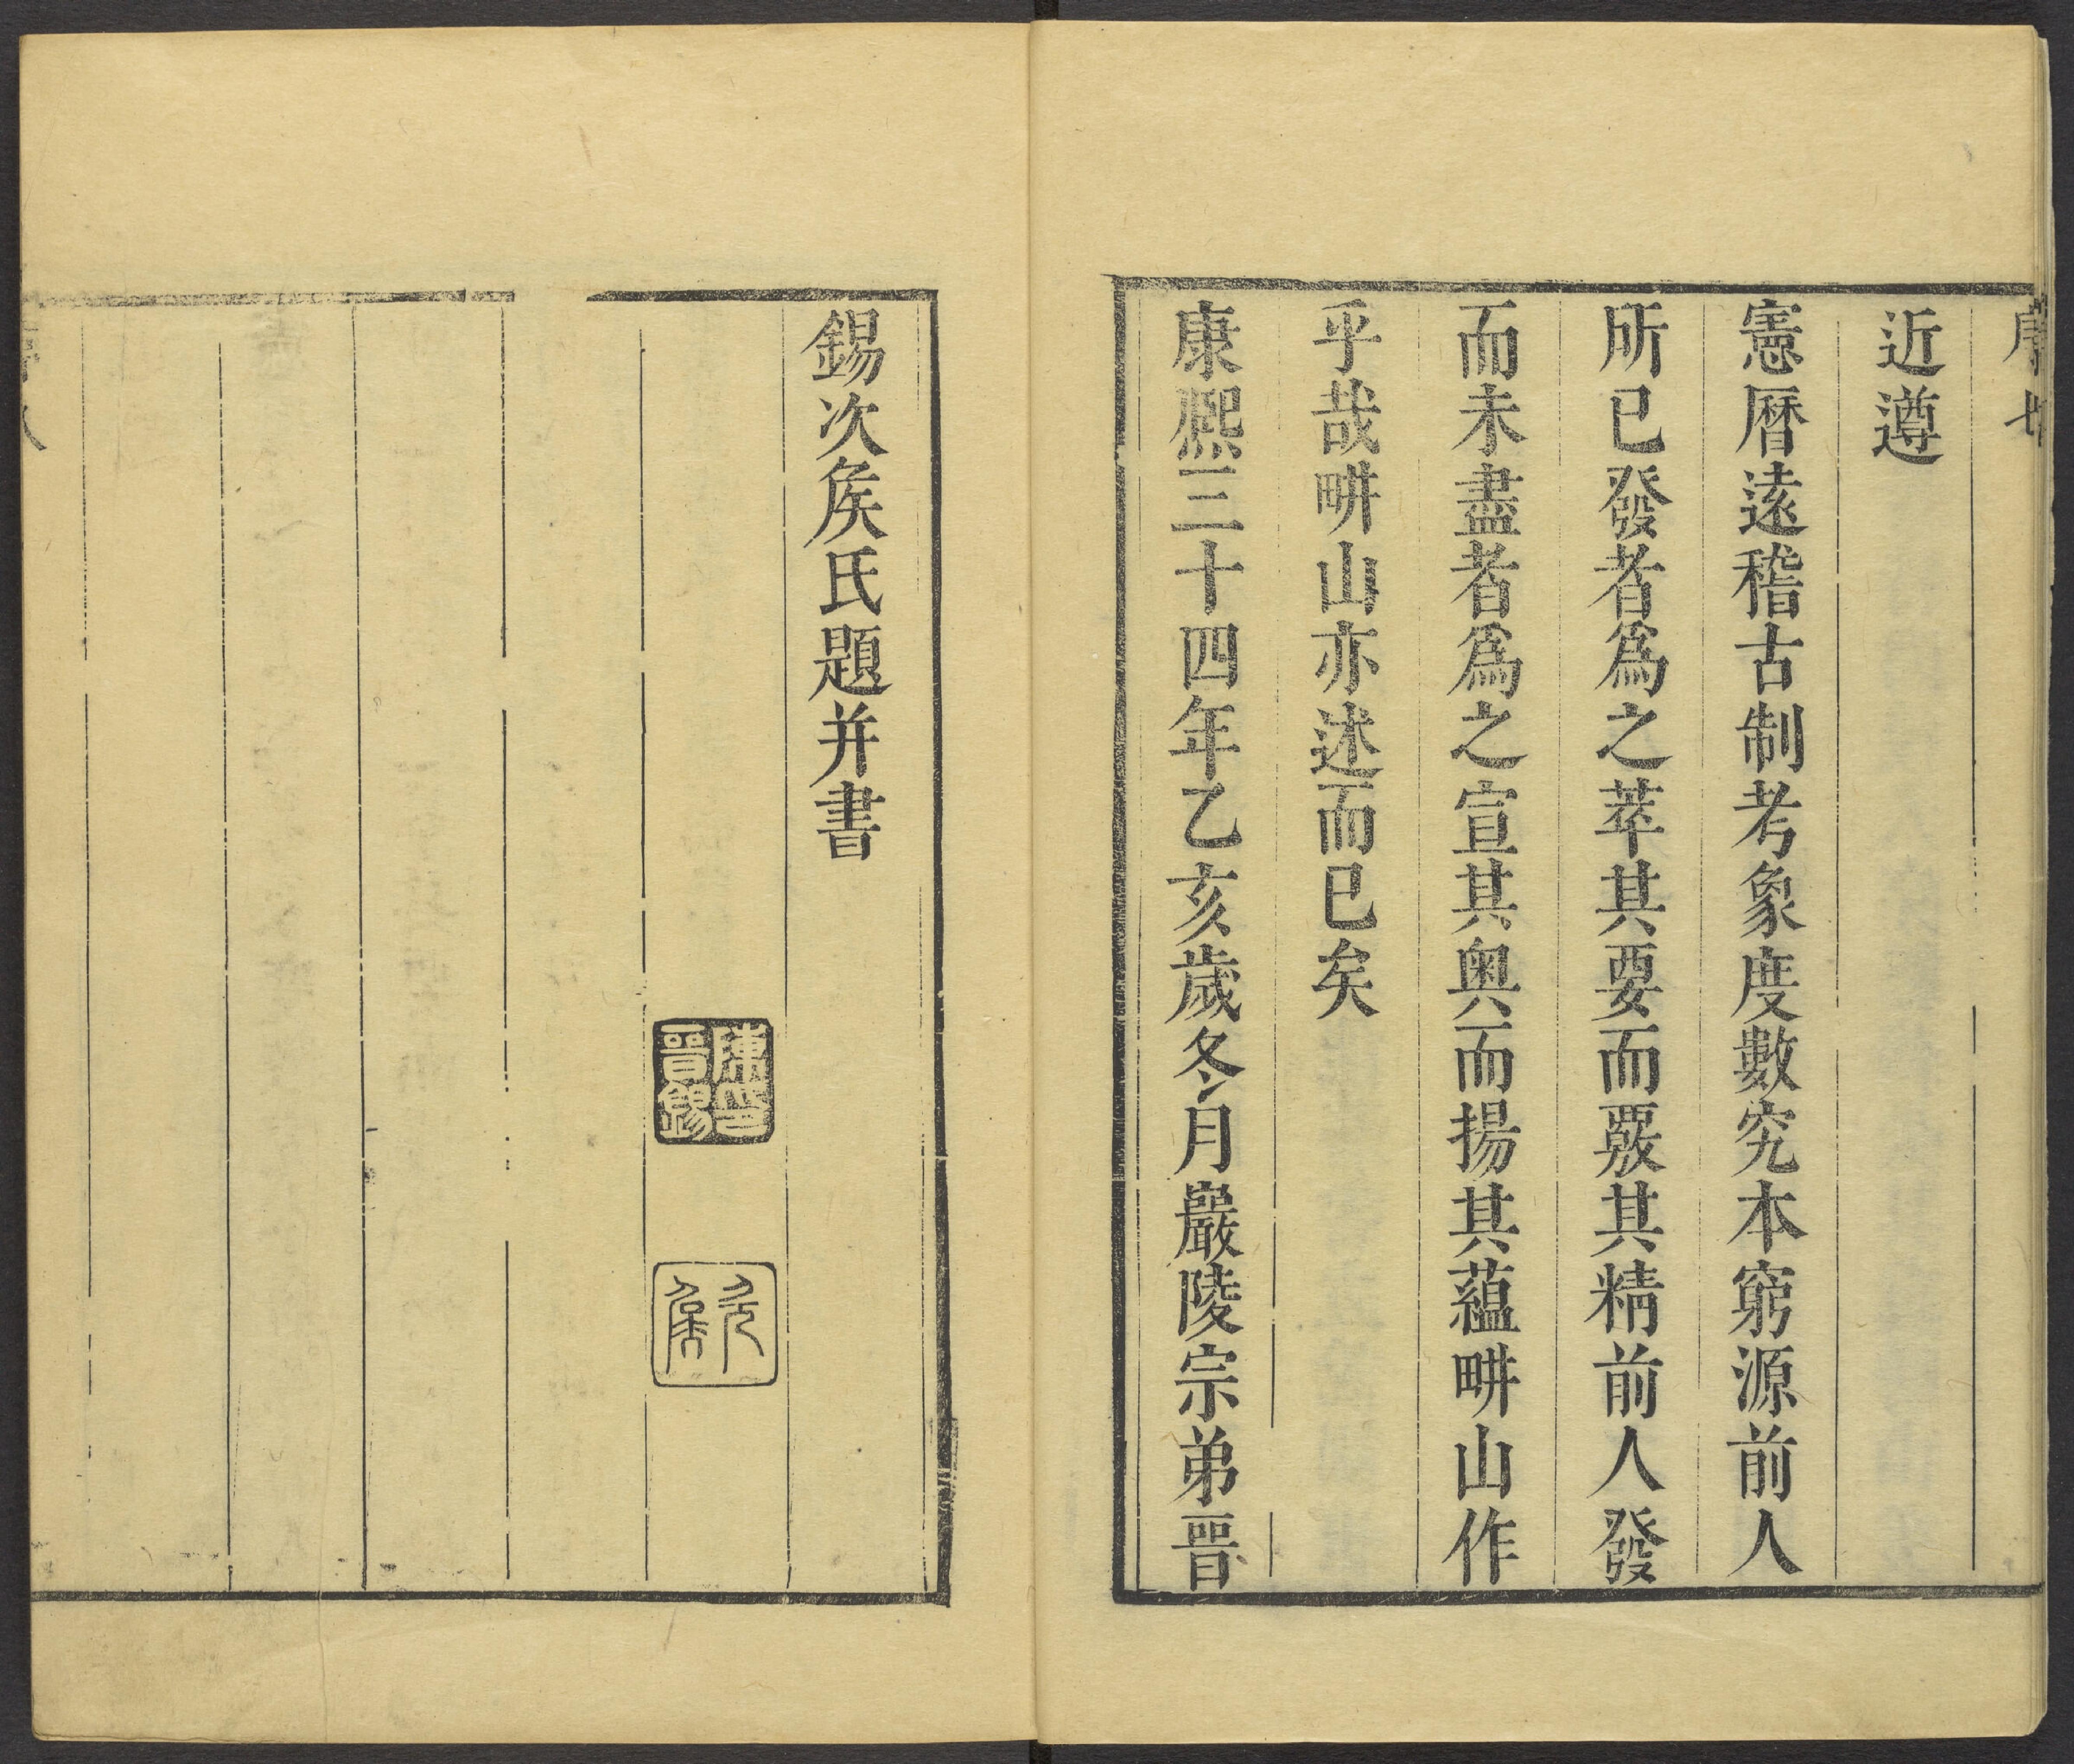 序 七
近遵
憲曆遠稽古制考象度數究本窮源前人
所已發者為之萃其要而覈其精前人發
而未盡者為之宣其奥而揚其蘊畊山作
乎哉畊山亦述而已矣
康熙三十四年乙亥歲冬月嚴陵宗弟晉
錫次矦氏題并書
陳晉錫印
次矦